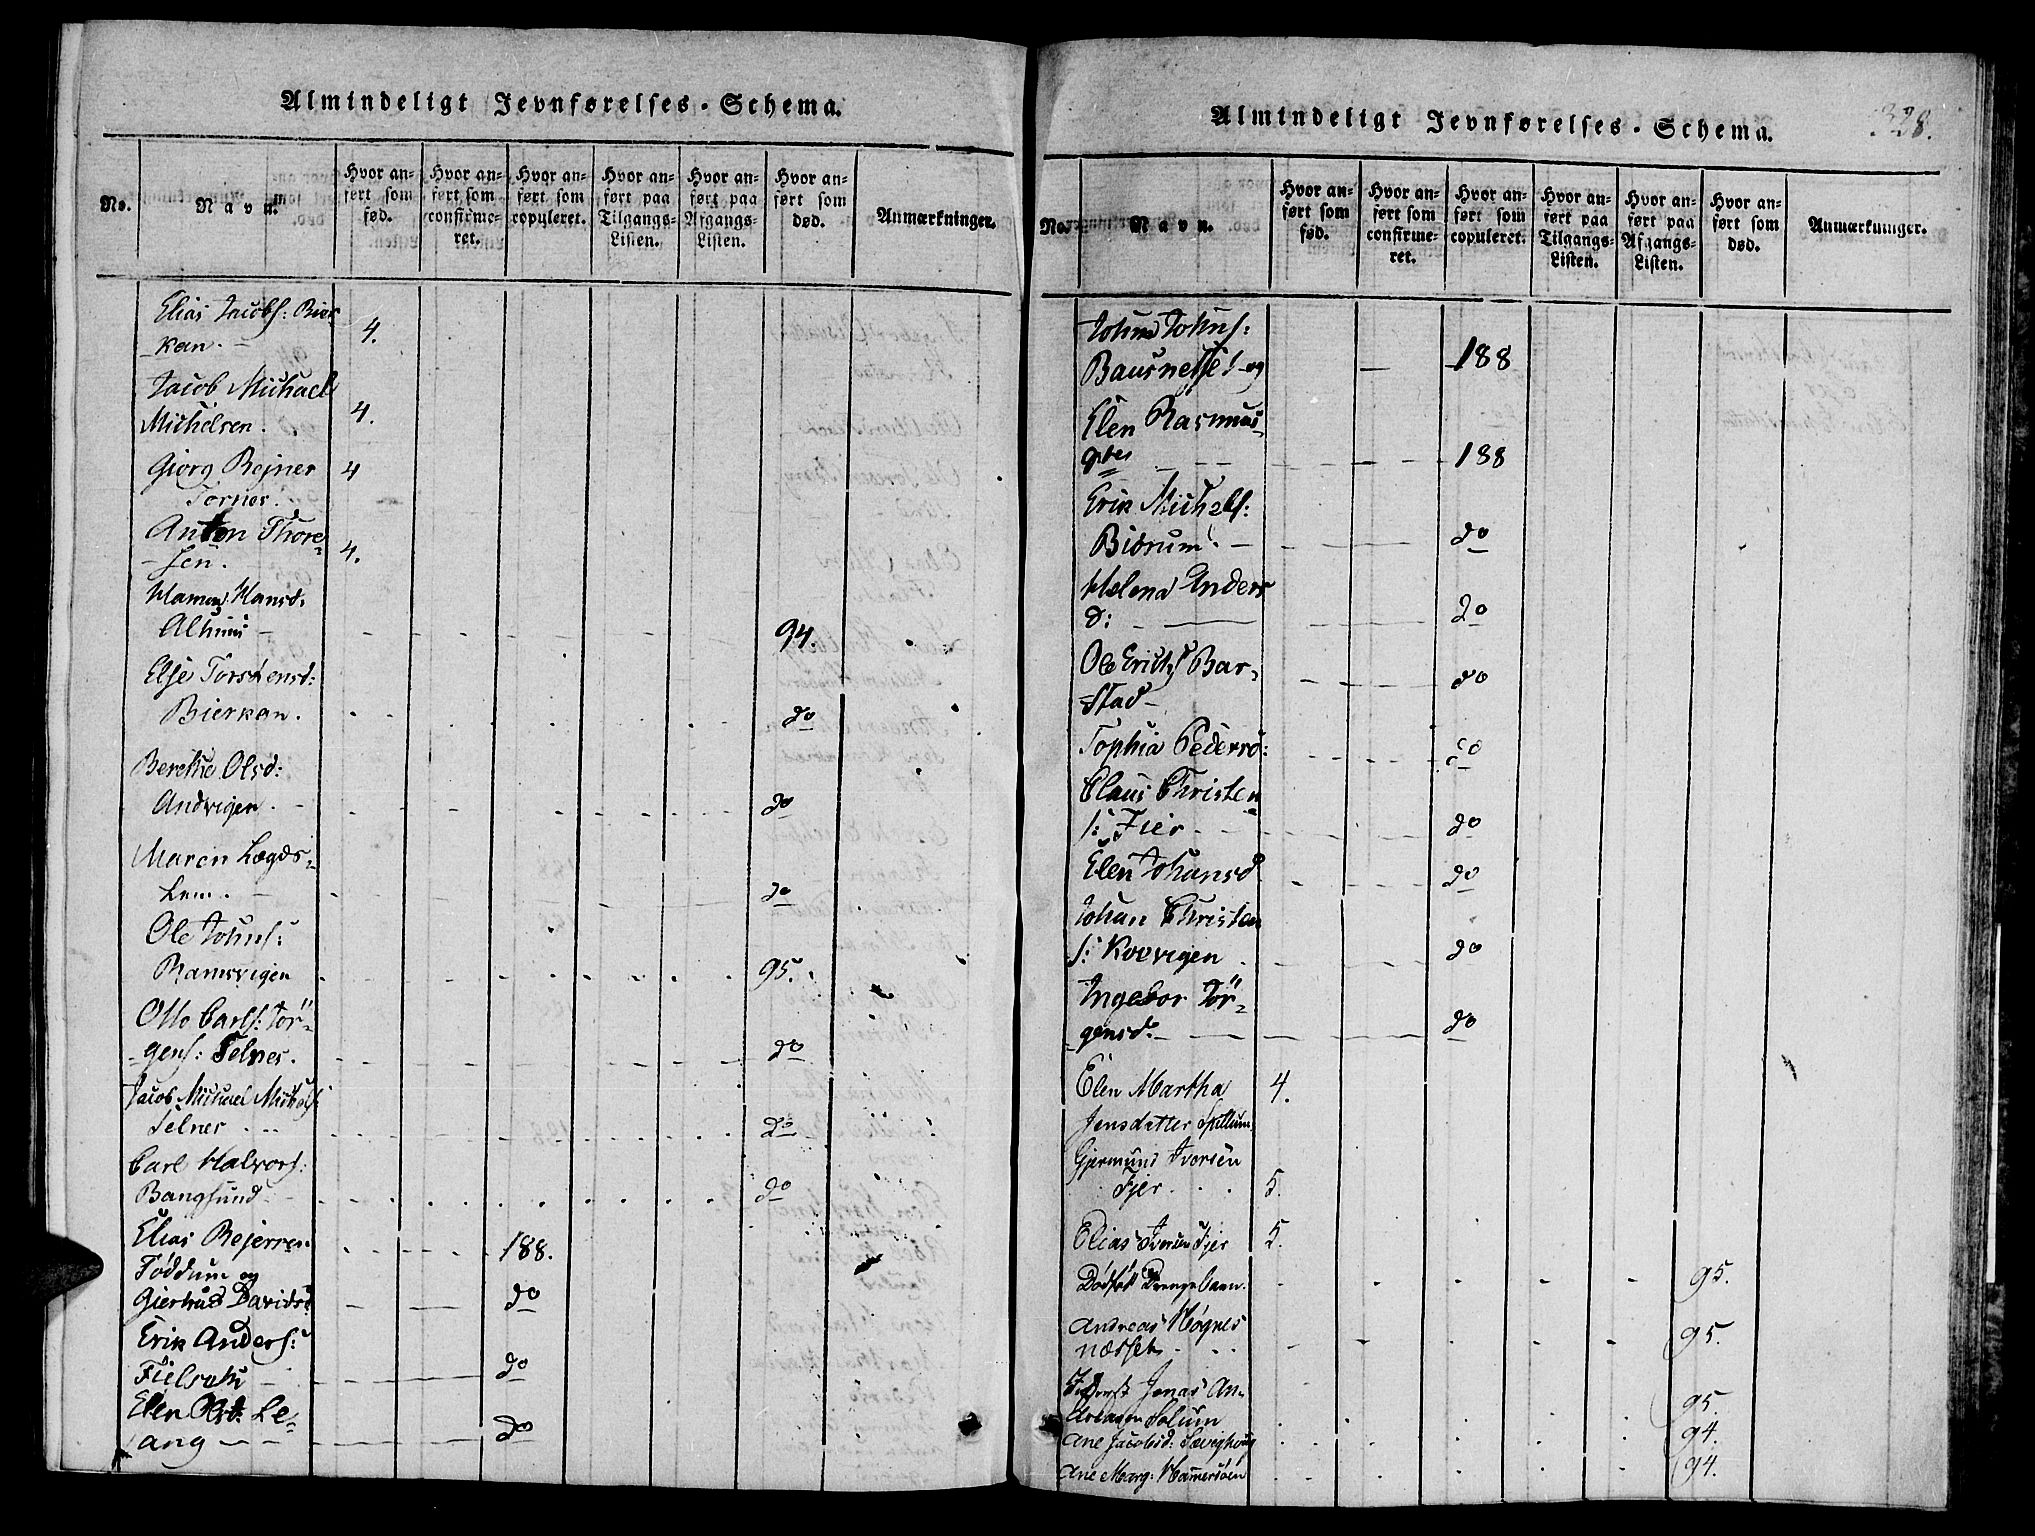 Almindeligt Jevnførelses-Schema.
No. Navn. Hvor anført som fød. Hvor anført som confirmeret. Hvor anført som copuleret. Hvor anført paa Tilgangs-Listen. Hvor anført paa Afgangs-Listen. Hvor anført som død. Anmærkninger.
Elias Jacobs: Bier
kan. 4.
Jacob Michael
Michelsen. 4.
Giorg Rejner 4
Anton Thore-
sen. 4.
Hansd.
94.
Elje Torstensd:
Bierkan. do
Berethe Olsd:
Andvigen. do
Maren Lægds-
Lem. do
Ole Johns:
Ramsvigen 95.
Otto Carls: Jör-
gens: Selnes. do
Jacob Michael Michels:
Selnes do
Carl Halvors:
Bangsund do
Elias Rejersen 188.
Föddum og
Davidsd do
Erik Anders:
do
Elen Le-
ang do
Almindeligt Jevnførelses-Schema. 328.
No. Navn. Hvor anført som fød. Hvor anført som confirmeret. Hvor anført som copuleret. Hvor anført paa Tilgangs-Listen. Hvor anført paa Afgangs-Listen. Hvor anført som død. Anmærkninger.
John Johns:
og 188
Elen Rasmus-
188
Erik Michels:
Biörum. do
Helena Anders
d: do
Ole Bar-
stad do
Sophia Pedersd: do
Claus Christen
s: Fier do
Elen Johansd do
Johan Christen
s: do
Ingebor Jör-
gensd. do
Elen Martha 4.
Jensdatter Spillum
Gjermund Iversen
Fjer 5.
Elias Iversen Fjer 5.
Dödfödt Drengebarn. 95.
Andreas Högnes
næsset 95.
Jonas An-
Solum 95.
Ane Jacobsd: 94.
Ane Marg: 94.